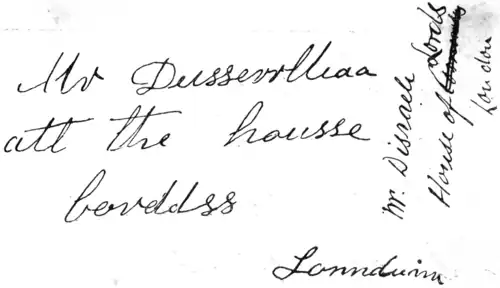 Mr Dusserrlleaa
att the housse
bovddss
Lonnduim
Mr. Disraeli
House of Lords
London